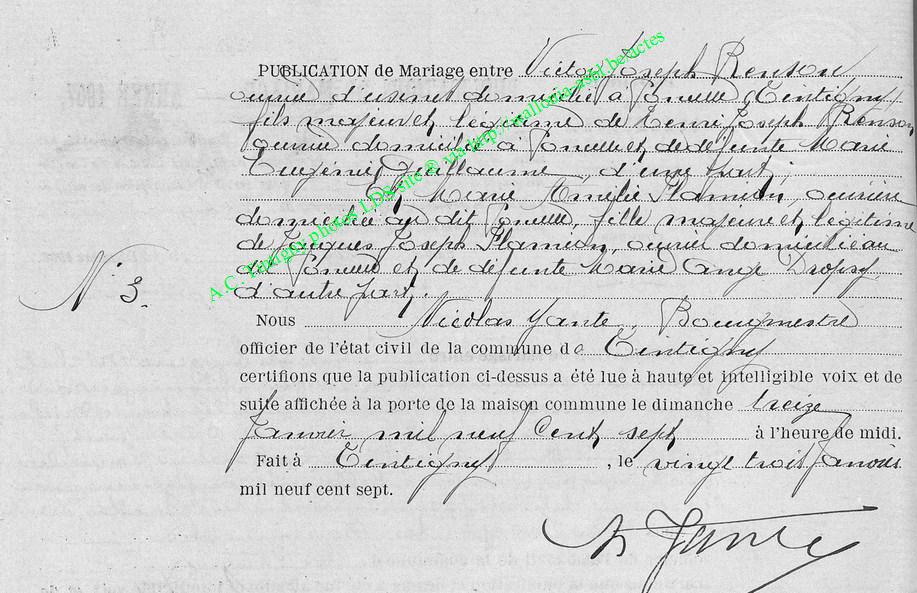 PUBLICATION de Mariage entre Victor Joseph Renson
ouvrier d'usines domicilié à Poncelle (Tintigny)
fils majeur et légitime de Henri Joseph Renson
ouvrier domicilié à Poncelle et de défunte Marie
Eugénie Guillaume, d'une part;
Et Marie Amélie Flamion, ouvrière
domiciliée au dit Poncelle, fille majeure et légitime
de Jacques Joseph Flamion, ouvrier domicilié au
dit Poncelle et de défunte Marie Ange Dropsy
d'autre part.
N° 3.
Nous Nicolas Yante, Bourgmestre
officier de l'état civil de la commune de Tintigny
certifions que la publication ci-dessus a été lue à haute et intelligible voix et de
suite affichée à la porte de la maison commune le dimanche treize
Janvier mil neuf cent sept à l'heure de midi.
Fait à Tintigny, le vingt trois Janvier
mil neuf cent sept.
N Yante
A.C. Tintigny photos LDS site © via http://wallonia-asbl.be/actes